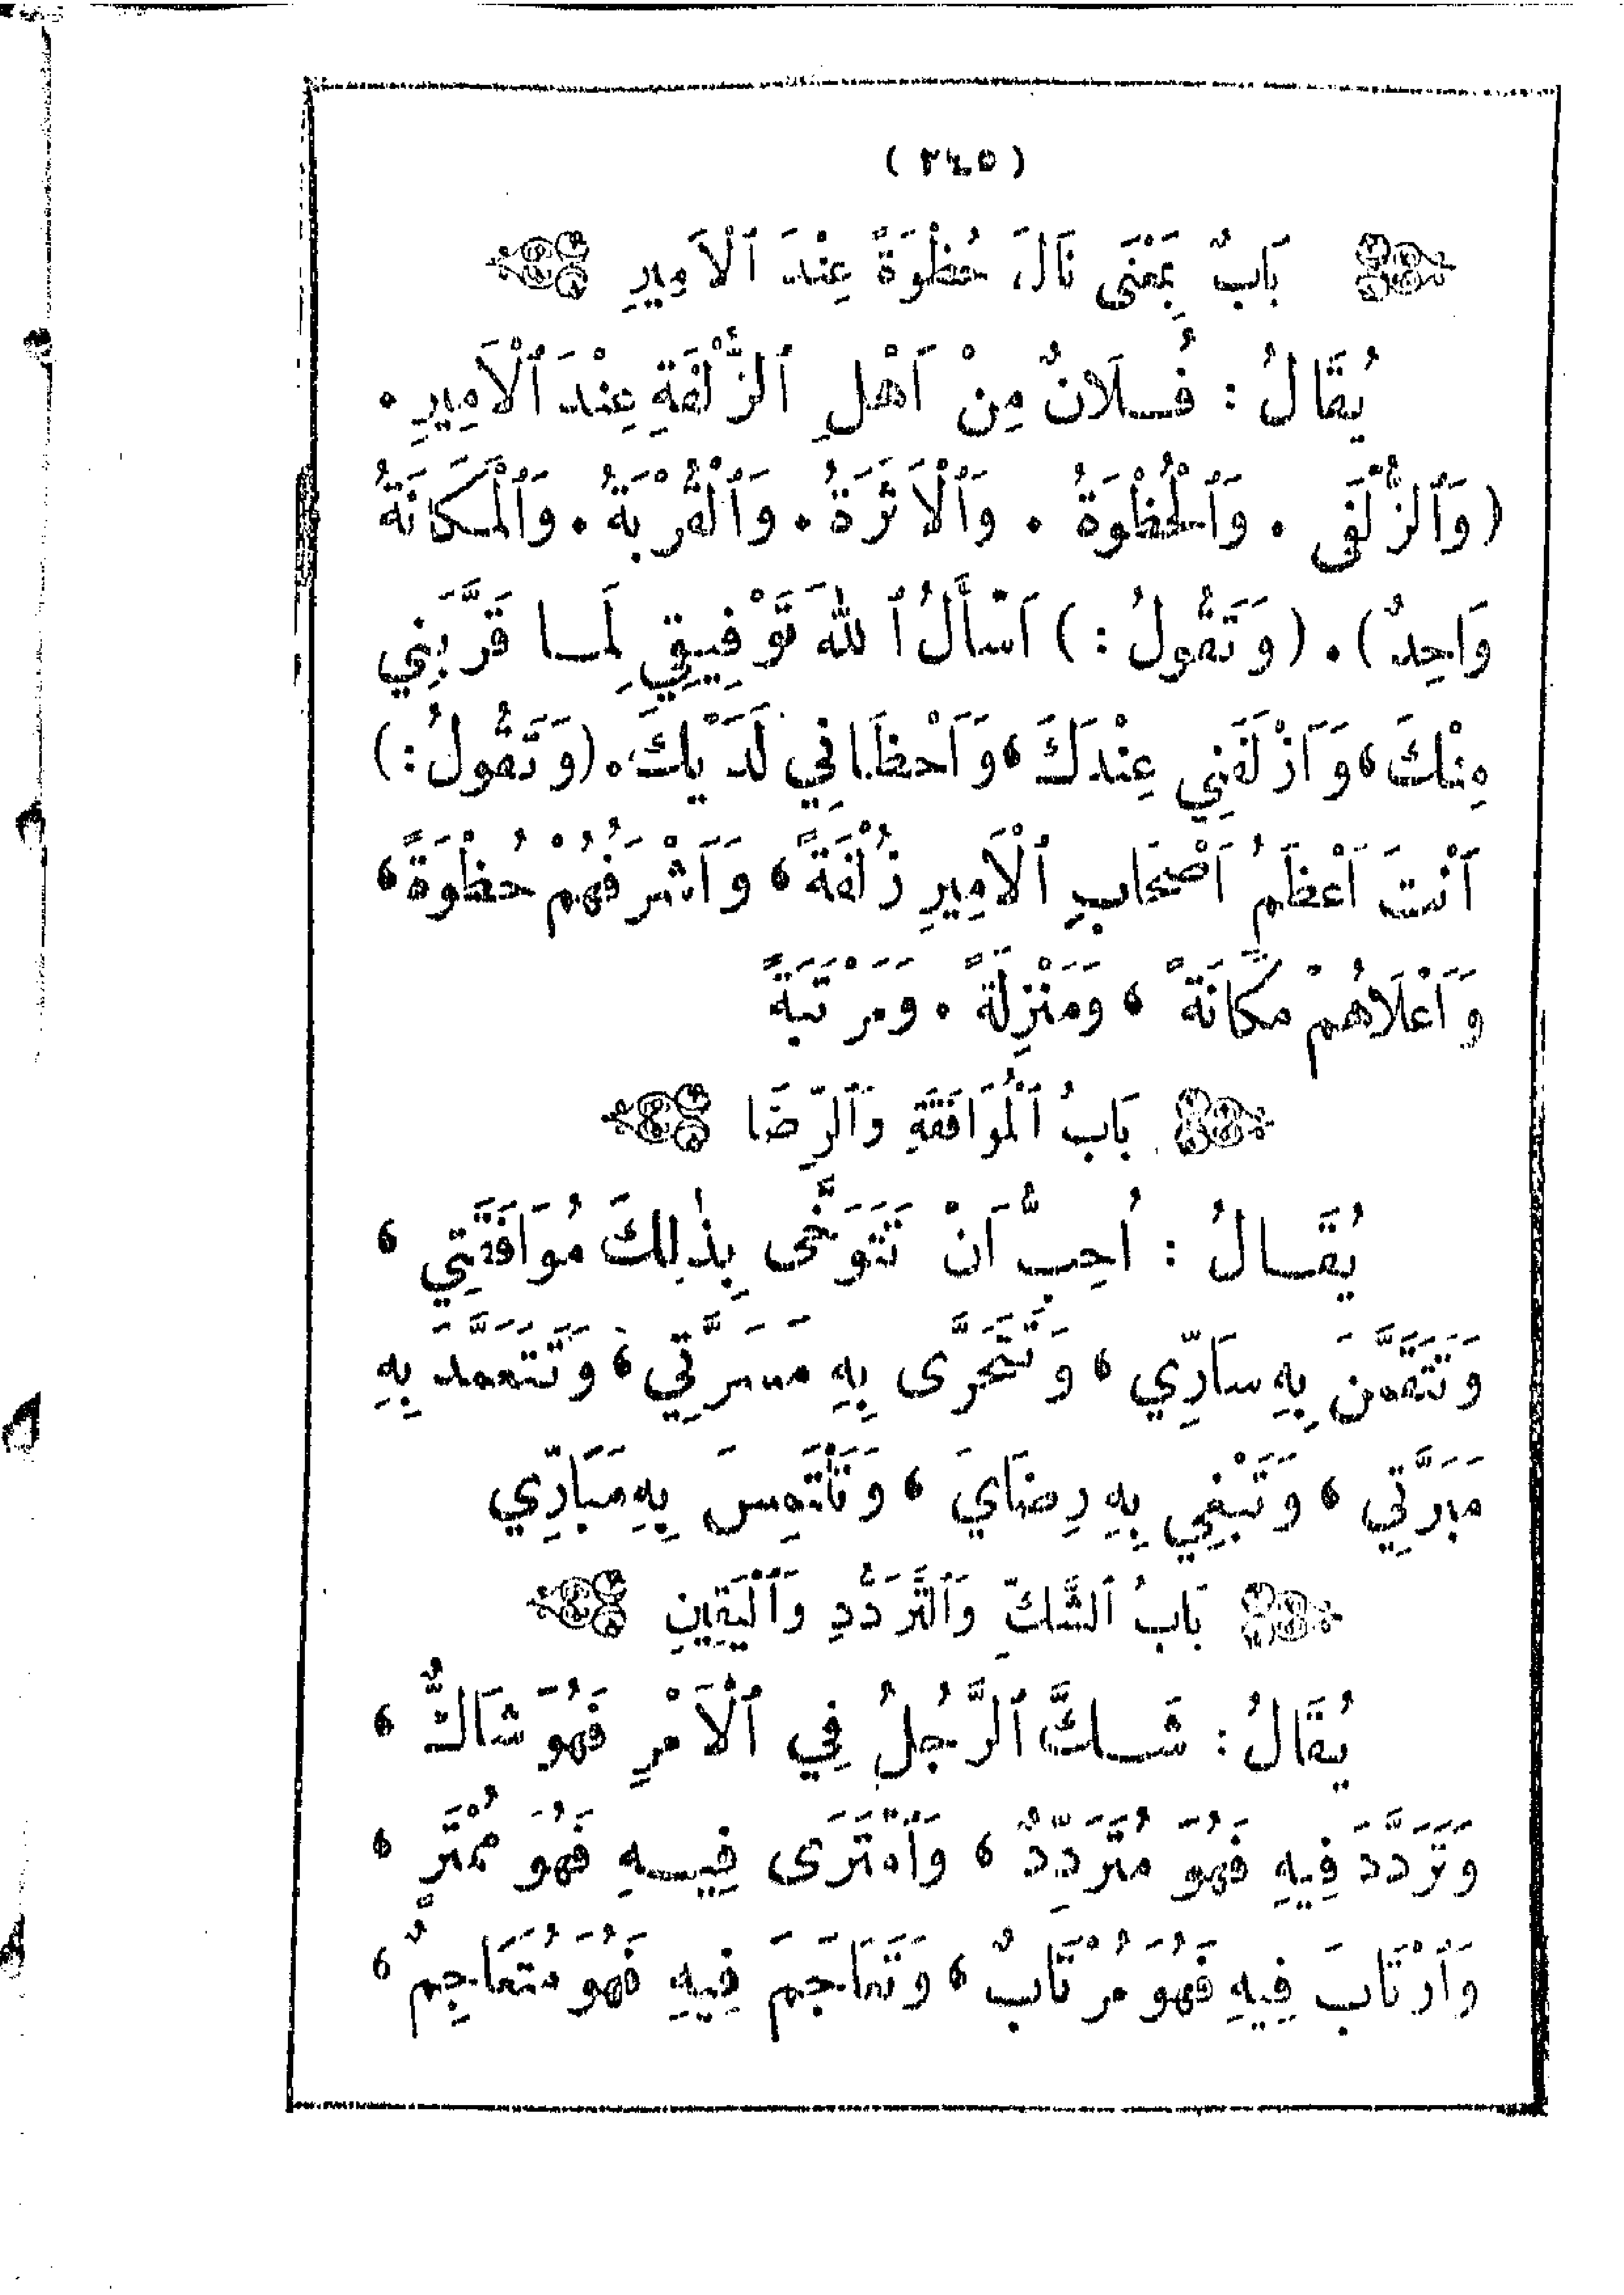 (٢٤٥)
بَابٌ بِمَعْنَى نَالَ حُظْوَةً عِنْدَ ٱلْاَمِيرِ
يُقَالُ : فُلَانٌ مِنْ اَهْلِ ٱلزُّلْفَةِ عِنْدَ ٱلْاَمِيرِ .
(وَٱلزُّلْفَى . وَٱلْحُظْوَةُ . وَٱلْاَثَرَةُ . وَٱلْقُرْبَةُ . وَٱلْمَكَانَةُ
وَاحِدٌ) . (وَتَقُولُ :) اَسْأَلُ ٱللهَ تَوْفِيقِي لِمَا قَرَّبَنِي
مِنْكَ ، وَاَزْلَفَنِي عِنْدَكَ ، وَاَحْظَانِي لَدَيْكَ . (وَتَقُولُ :)
اَنْتَ اَعْظَمُ اَصْحَابِ ٱلْاَمِيرِ زُلْفَةً ، وَاَشْرَفُهُمْ حُظْوَةً ،
وَاَعْلَاهُمْ مَكَانَةً ، وَمَنْزِلَةً . وَمَرْتَبَةً
بَابُ ٱلْمُوَافَقَةِ وَٱلرِّضَا
يُقَالُ : اُحِبُّ اَنْ تَتَوَخَّى بِذٰلِكَ مُوَافَقَتِي ،
وَتَتَقَمَّنَ بِهِ سَارِّي ، وَتَتَحَرَّى بِهِ مَسَرَّتِي ، وَتَتَعَمَّدَ بِهِ
مَبَرَّتِي ، وَتَبْغِي بِهِ رِضَايَ ، وَتَلْتَمِسَ بِهِ مَبَارِّي
بَابُ ٱلشَّكِّ وَٱلتَّرَدُّدِ وَٱلْيَقِينِ
يُقَالُ : شَكَّ ٱلرَّجُلُ فِي ٱلْاَمْرِ فَهُوَ شَاكٌّ ،
وَتَرَدَّدَ فِيهِ فَهُوَ مُتَرَدِّدٌ ، وَٱمْتَرَى فِيهِ فَهُوَ مُمْتَرٍ ،
وَٱرْتَابَ فِيهِ فَهُوَ مُرْتَابٌ ، وَتَعَاجَمَ فِيهِ فَهُوَ مُتَعَاجِمٌ ،